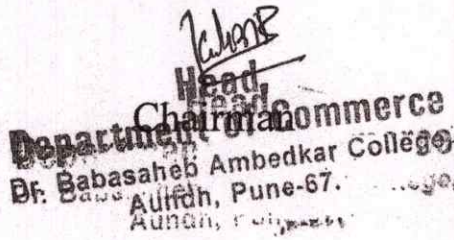 Head,
Chairman
Department of Commerce
Dr. Babasaheb Ambedkar College,
Aundh, Pune-67.